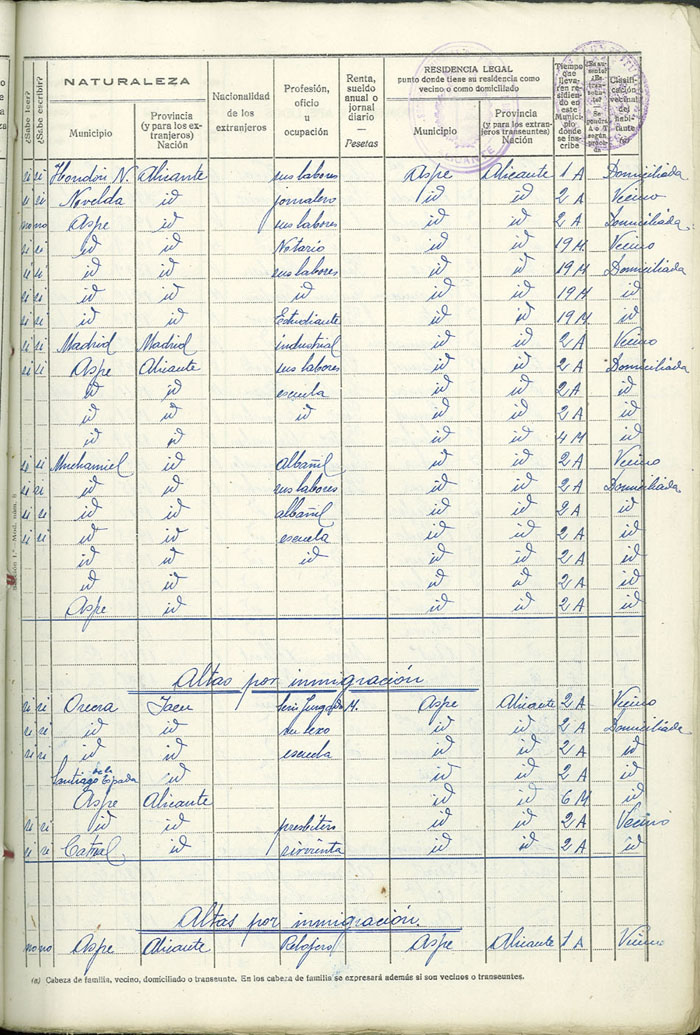 ¿Sabe leer?
¿Sabe escribir?
NATURALEZA
Municipio
Provincia (y para los extranjeros) Nación
Nacionalidad de los extranjeros
Profesión, oficio u ocupación
Renta, sueldo anual o jornal diario — Pesetas
RESIDENCIA LEGAL
punto donde tiene su residencia como vecino o como domiciliado
Municipio
Provincia (y para los extranjeros transeuntes) Nación
Tiempo que lleva ren residiendo en este Municipio donde se inscribe
Clasificación vecinal del habitante
si si Hondón N. Alicante sus labores Aspe Alicante 1 A Domiciliada
si si Novelda id jornalero id id 2 A Vecino
no no Aspe id sus labores id id 2 A Domiciliada
si si id id Notario id id 19 M Vecino
si si id id sus labores id id 19 M Domiciliada
si si id id id id id 19 M id
si si id id Estudiante id id 19 M id
si si Madrid Madrid industrial id id 2 A Vecino
si si Aspe Alicante sus labores id id 2 A Domiciliada
id id escuela id id 2 A id
id id id id id 2 A id
id id id id 4 M id
si si Muchamiel id Albañil id id 2 A Vecino
si si id id sus labores id id 2 A Domiciliada
si si id id albañil id id 2 A id
si si id id escuela id id 2 A id
id id id id id 2 A id
id id id id 2 A id
Aspe id id id 2 A id
Altas por inmigración
si si Orcera Jaen Aspe Alicante 2 A Vecino
si si id id su sexo id id 2 A Domiciliada
si si id id escuela id id 2 A id
Santiago de la Espada id id id 2 A id
Aspe Alicante id id 6 M id
si si id id presbitero id id 2 A Vecino
si si Catral id sirvienta id id 2 A id
Altas por inmigración.
no no Aspe Alicante Relojero Aspe Alicante 1 A Vecino
(a) Cabeza de familia, vecino, domiciliado o transeunte. En los cabeza de familia se expresará además si son vecinos o transeuntes.